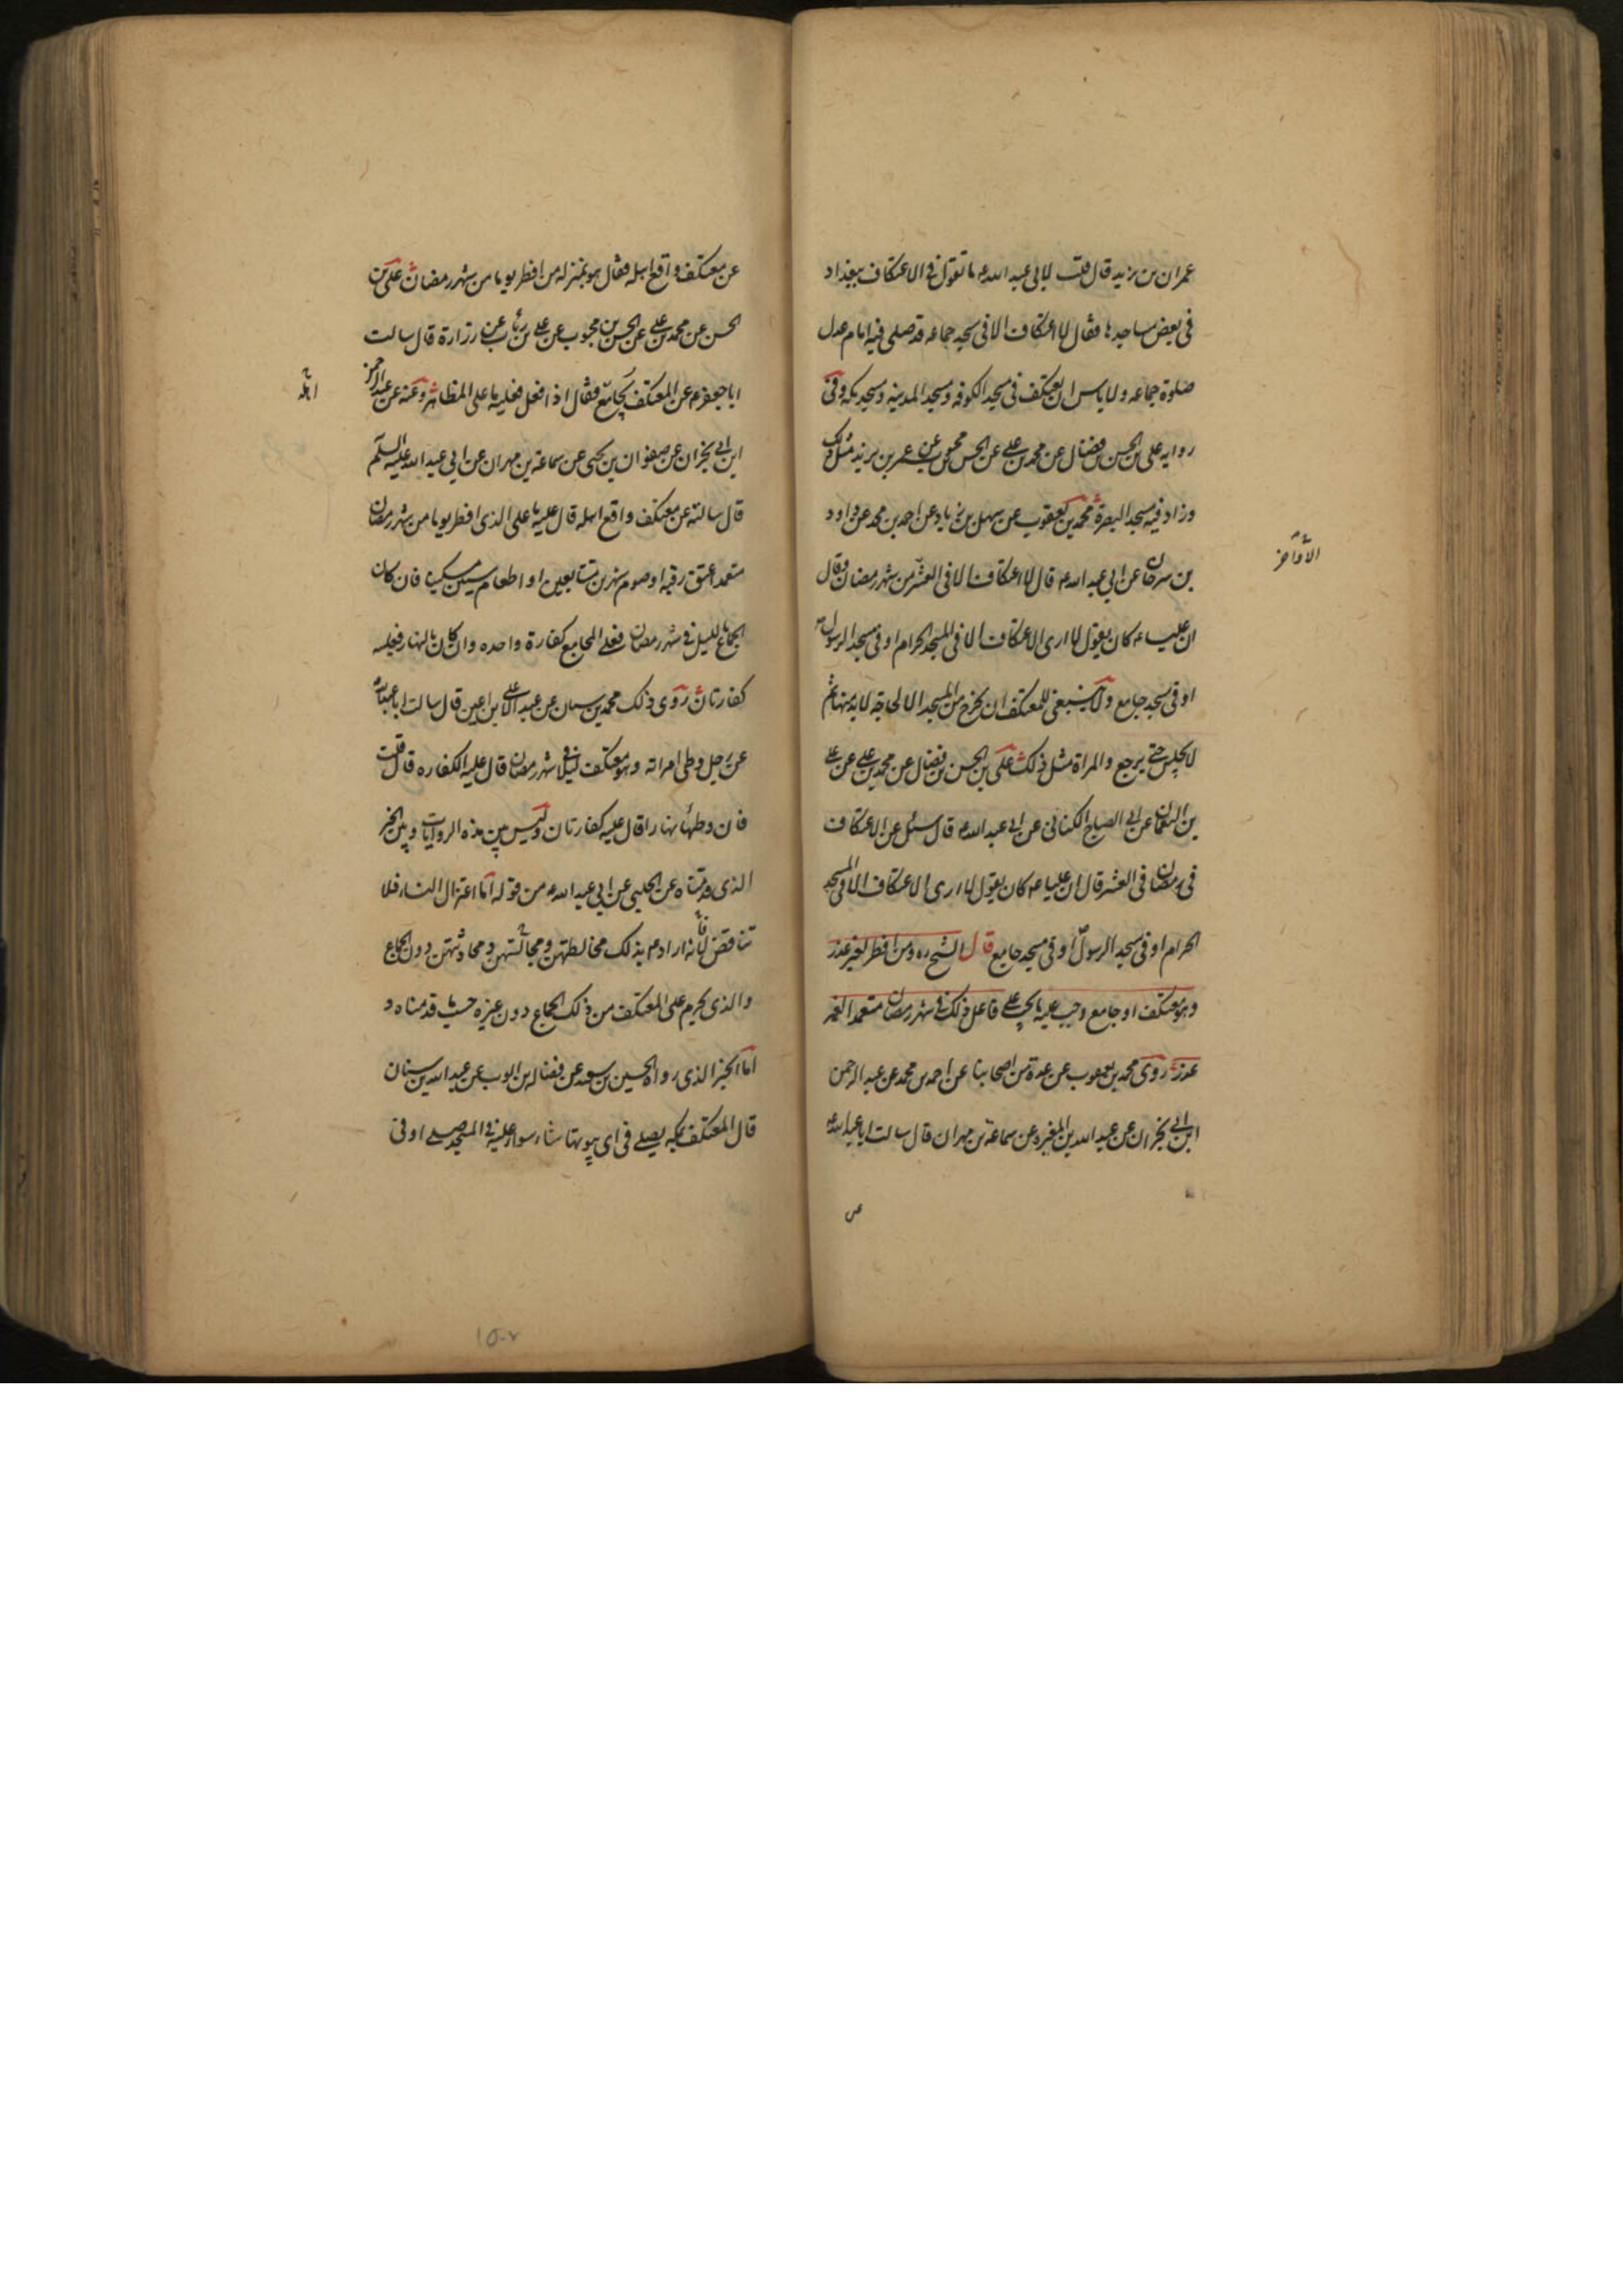 عمران بن يزيد قال قلت لابى عبد الله ع ما تقول فى الاعتكاف ببغداد
فى بعض مساجدها فقال لا اعتكاف الا فى مسجد جماعه قد صلى فيه امام عدل
صلوة جماعه ولا باس ان يعتكف فى مسجد الكوفه ومسجد المدينه ومسجد مكه وفى
روايه على بن الحسن بن فضال عن محمد بن على عن الحسن بن محبوب عن عمر بن يزيد مثل ذلك
وزاد فيه مسجد البصرة محمد بن يعقوب عن سهل بن زياد عن احمد بن محمد عن داود
بن سرحان عن ابى عبد الله ع قال لا اعتكاف الا فى العشر من شهر رمضان وقال
الاواخر
ان عليا ع كان يقول لا ارى الاعتكاف الا فى المسجد الحرام او فى مسجد الرسول
او فى مسجد جامع ولا ينبغى للمعتكف ان يخرج من المسجد الا لحاجة لا بد منها ثم
لا يجلس حتى يرجع والمراة مثل ذلك على بن الحسن بن فضال عن محمد بن على عن على
بن النعمان عن ابى الصباح الكنانى عن ابى عبد الله ع قال سئل عن الاعتكاف
فى رمضان فى العشر قال ان عليا ع كان يقول لا ارى الاعتكاف الا فى المسجد
الحرام او فى مسجد الرسول او فى مسجد جامع قال الشيخ ره ومن افطر لغير عذر
وهو معتكف او جامع وجب عليه ما يجب على فاعل ذلك فى شهر رمضان متعمدا لغير
عذر روى محمد بن يعقوب عن عدة من اصحابنا عن احمد بن محمد عن عبد الرحمن
ابن ابى نجران عن عبد الله بن المغيرة عن سماعة بن مهران قال سالت ابا عبد الله ع
عن
عن معتكف واقع اهله فقال هو بمنزله من افطر يوما من شهر رمضان على بن
الحسن عن محمد بن على عن الحسن بن محبوب عن على بن رئاب عن زرارة قال سالت
ابا جعفر ع عن المعتكف يجامع فقال اذا فعل فعليه ما على المظاهر وعنه عن عبد الرحمن
اهله
ابن ابى نجران عن صفوان بن يحيى عن سماعة بن مهران عن ابى عبد الله عليه السلم
قال سالته عن معتكف واقع اهله قال عليه ما على الذى افطر يوما من شهر رمضان
متعمدا عتق رقبه او صوم شهرين متتابعين او اطعام ستين مسكينا فان كان
الجماع بالليل فى شهر رمضان فعلى المجامع كفارة واحده وان كان بالنهار فعليه
كفارتان روى ذلك محمد بن سنان عن عبد الاعلى ابن اعين قال سالت ابا عبد الله
عن رجل وطى امراته وهو معتكف ليلا فى شهر رمضان قال عليه الكفاره قال قلت
فان وطئها نهارا قال عليه كفارتان وليس بين هذه الروايات وبين الخبر
الذى قدمناه عن الحلبى عن ابى عبد الله ع من قوله اما اعتزال النساء فلا
تناقض لانه اراد ع بذلك مخالطتهن ومجالستهن ومحادثتهن دون الجماع
والذى يحرم على المعتكف من ذلك الجماع دون غيره حسب ما قدمناه و
اما الخبر الذى رواه الحسين بن سعيد عن فضاله بن ايوب عن عبد الله بن سنان
قال المعتكف بمكه يصلى فى اى بيوتها شاء سواء عليه فى المسجد صلى او فى